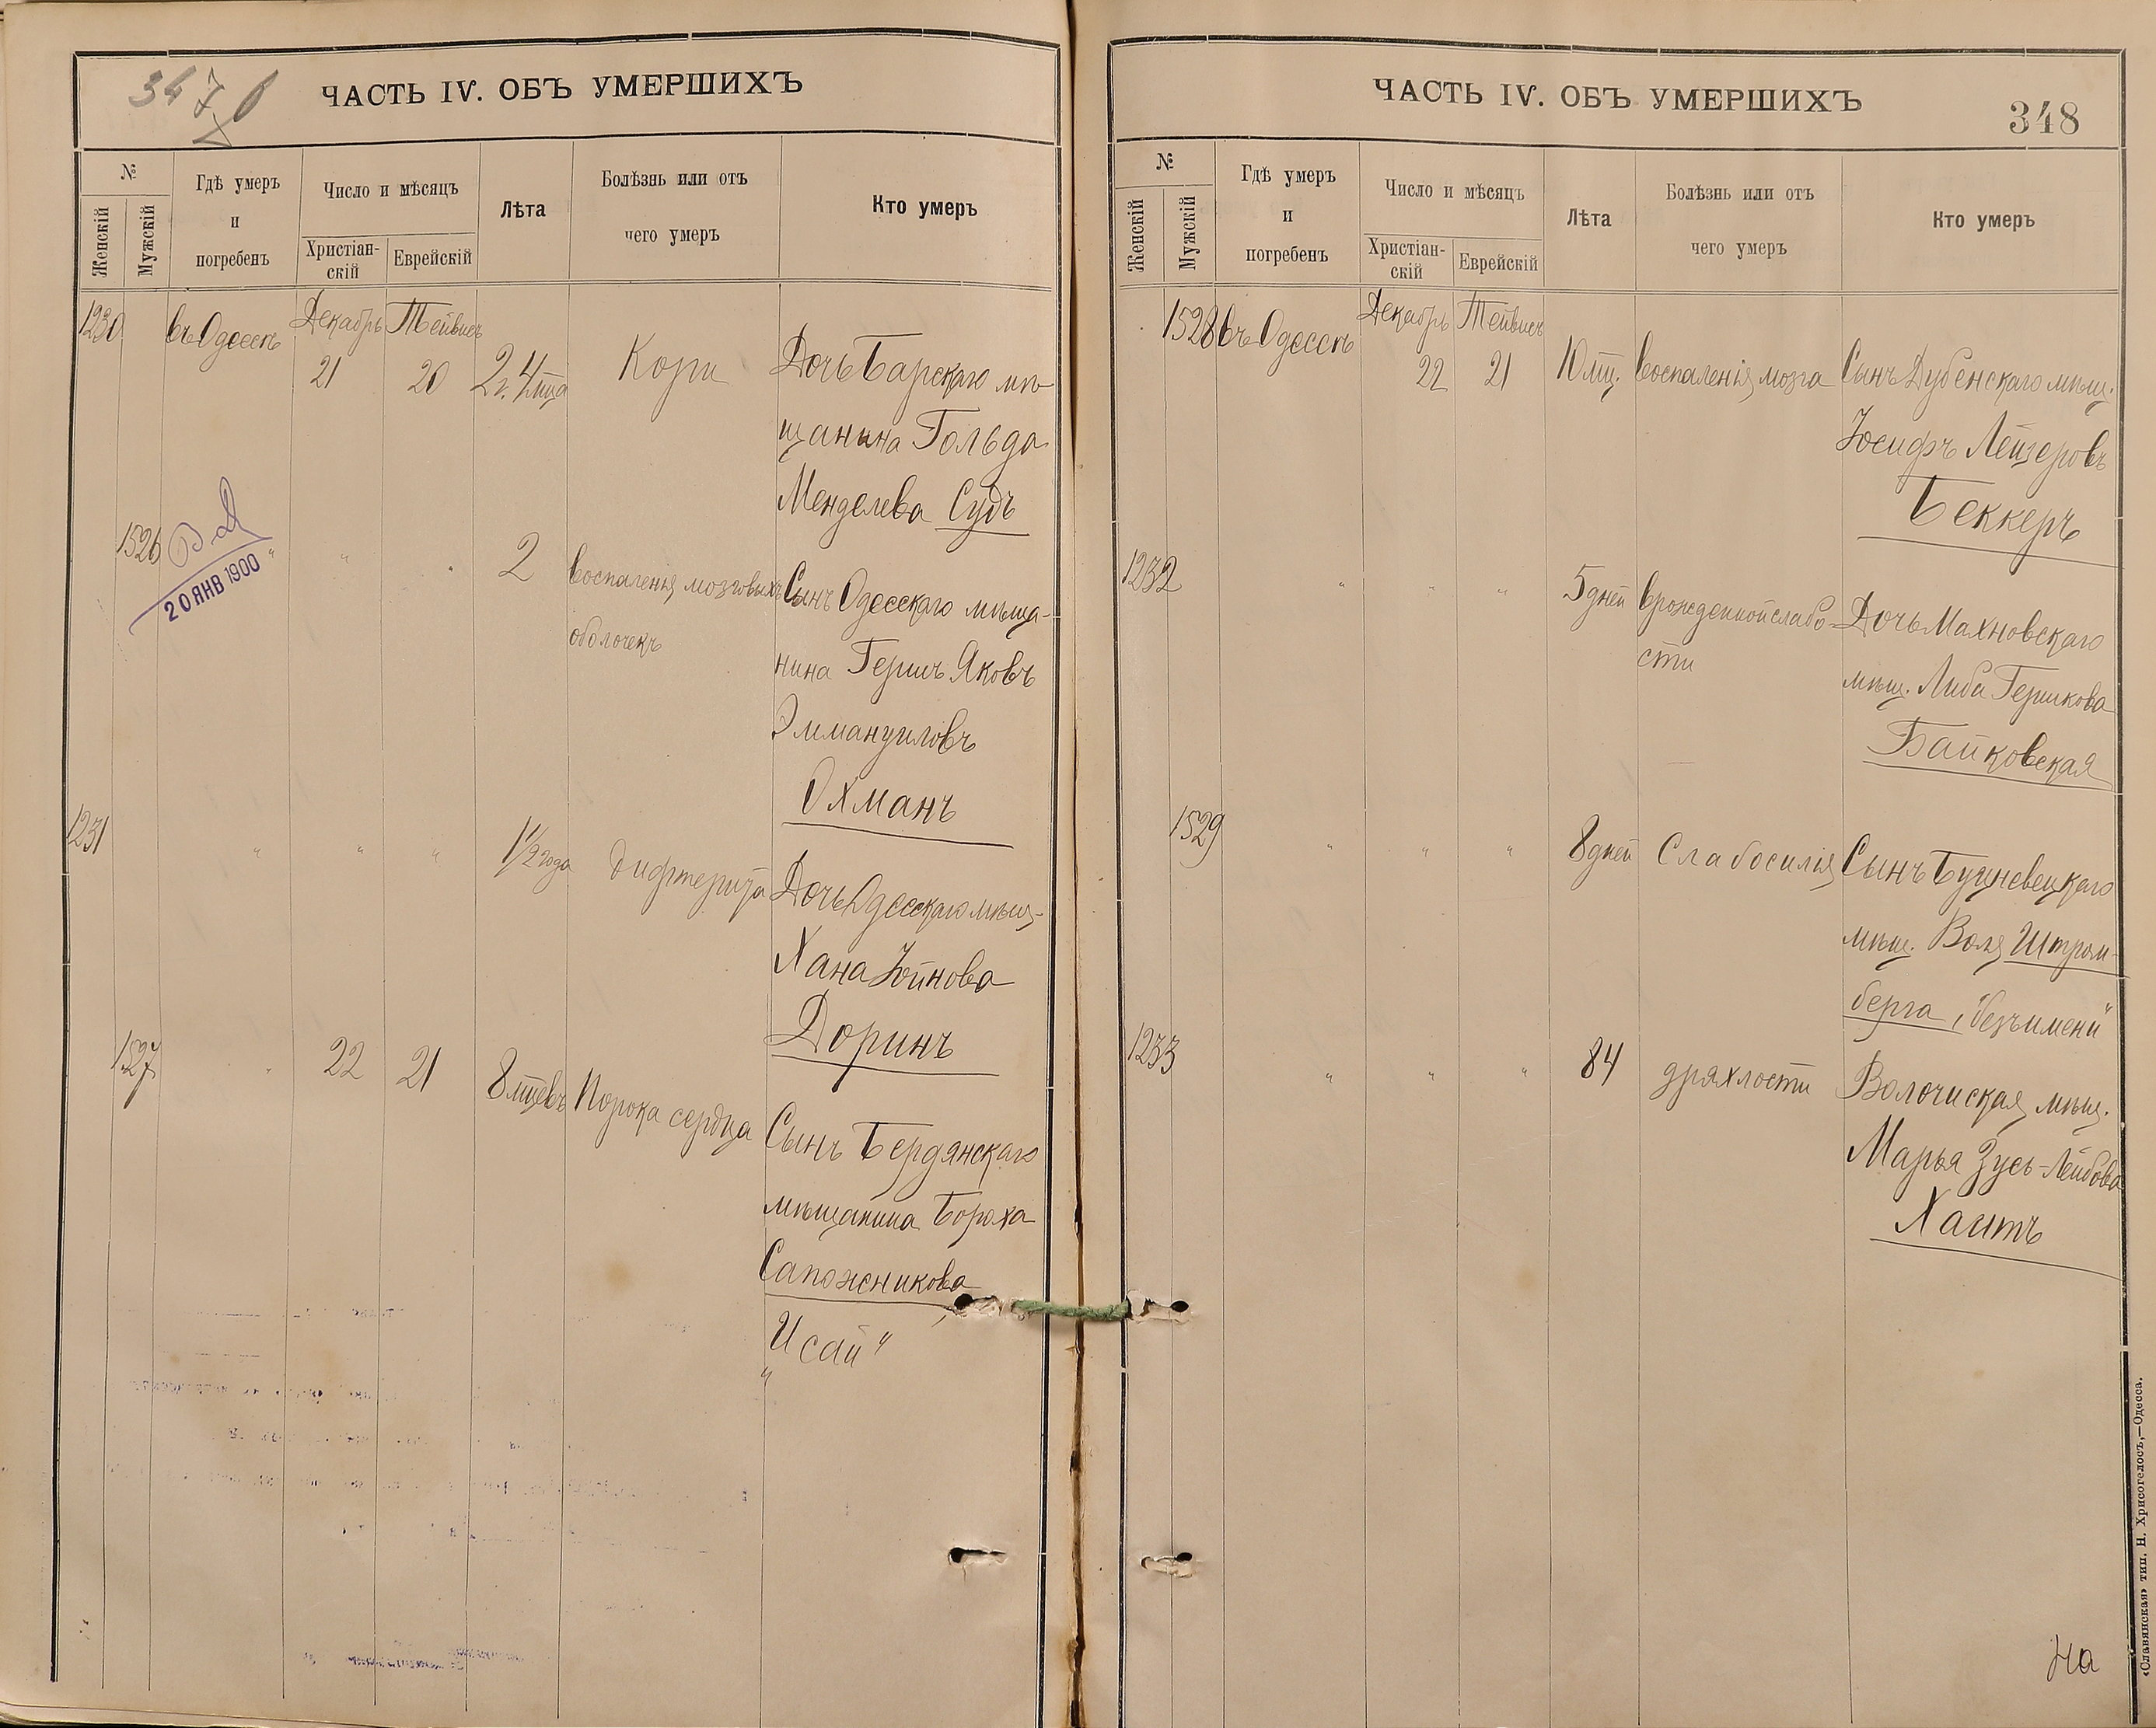 347 б
ЧАСТЬ IV. ОБЪ УМЕРШИХЪ
№
Женскій
Мужскій
Гдѣ умеръ
и
погребенъ
Число и мѣсяцъ
Христіан-
скій
Еврейскій
Лѣта
Болѣзнь или отъ
чего умеръ
Кто умеръ
1230 въ Одессѣ Декабрь Тейвисъ
21 20 2 г. 4 мца Кори Дочь Барскаго мѣ-
щанина Гольда
Менделева Судъ
1526 " " " 2 воспаленія мозговыхъ Сынъ Одесскаго мѣща-
оболочекъ
нина Гершъ Яковъ
Эммануиловъ
Охманъ
20 ЯНВ 1900
1231 " " " 1 1/2 года дифтерита Дочь Одесскаго мѣщ-
Хана Юйнова
Доринъ
1527 " 22 21 8 мцевъ Порока сердца Сынъ Бердянскаго
мѣщанина Бороха
Сапожникова
"Исай"
ЧАСТЬ IV. ОБЪ УМЕРШИХЪ
348
№
Женскій
Мужскій
Гдѣ умеръ
и
погребенъ
Число и мѣсяцъ
Христіан-
скій
Еврейскій
Лѣта
Болѣзнь или отъ
чего умеръ
Кто умеръ
1528 въ Одессѣ Декабрь Тейвисъ
22 21 10 мц. воспаленія мозга Сынъ Дубенскаго мѣщ.
Іосифъ Лейзеровъ
Беккеръ
1232 " " " 5 дней врожденной слабо- Дочь Махновскаго
сти
мѣщ. Либа Гершкова
Байковская
1529 " " " 8 дней Слабосилія Сынъ Бушневецкаго
мѣщ. Воля Штром-
берга, "безъ имени"
1233 " " " 84 дряхлости Волочиская мѣщ.
Марья Зусь-Лейбова
Хаитъ
На
«Славянская» тип. Н. Хрисогелосъ,—Одесса.